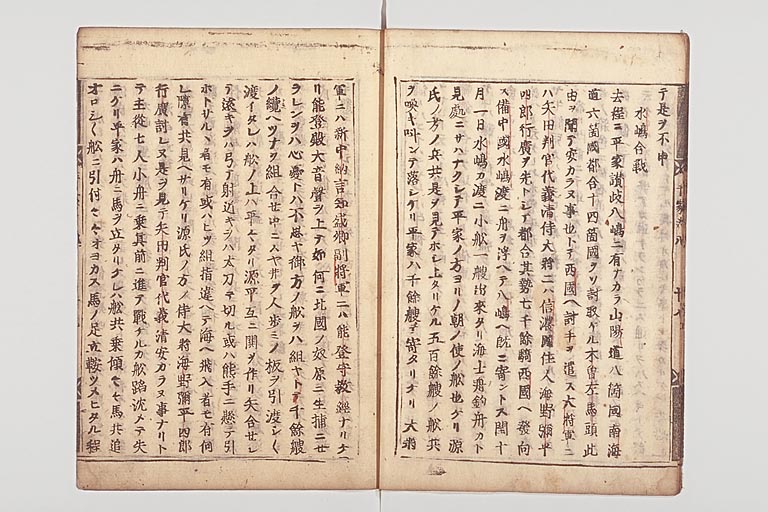 テ是ヲ不申
水嶋合戰
去程ニ平家讃岐八嶋ニ有ナカラ山陽道八箇國南海
道六箇國都合十四箇國ヲソ討取ケル木曽左馬頭此
由ヲ聞テ安カラヌ事也トテ西國ヘ討手ヲ遣ス大將軍ニ
ハ矢田判官代義清侍大將ニハ信濃國住人海野彌平
四郎行廣ヲ先トシテ都合其勢七千餘騎西國ヘ發向
ス備中國水嶋渡ニ舟ヲ浮ヘテ八嶋ヘ既ニ寄ントス閏十
月一日水嶋カ渡ニ小舩一艘出來タリ海士舟釣舟カト
見處ニサハナクシテ平家ノ方ヨリノ朝ノ使ノ舩也ケリ源
氏ノ方ノ兵共是ヲ見テホシ上タリケル五百餘艘ノ舩共
ヲ喚キ叫ンテ落シケリ平家ハ千餘艘テ寄タリケリ大將
軍ニハ新中納言知盛卿副將軍ニハ能登守教經ナリケ
リ能登殿大音聲ヲ上テ如何ニ北國ノ奴原ニ生捕ニセ
ラレンヲハ心憂トハ不思ヤ御方ノ舩ヲハ組ヤトテ千餘艘
ノ纜ヘツナヲ組合セ中ニムヤ井ヲ入歩ミノ板ヲ引渡シ〱
渡イタレハ舩ノ上ハ平々タリ源平互ニ閧ヲ作リ矢合セシ
テ遠キヲハ弓テ射近キヲハ太刀テ切ル或ハ熊手ニ懸テ引
ホトサルヽ者モ有或ハヒツ組指違ヘテ海ヘ飛入者モ有何
レ隙有共見ヘサリケリ源氏ノ方ノ侍大將海野彌平四郎
行廣討レヌ是ヲ見テ矢田判官代義清安カラヌ事ナリト
テ主從七人小舟ニ乗真前ニ進テ戰ケルカ舩踏沈メテ失
ニケリ平家ハ舟ニ馬ヲ立タリケレハ舩共乗傾ケ〱馬共追
オロシ〱舩ニ引付〱オヨカス馬ノ足立鞍ツメヒタル程